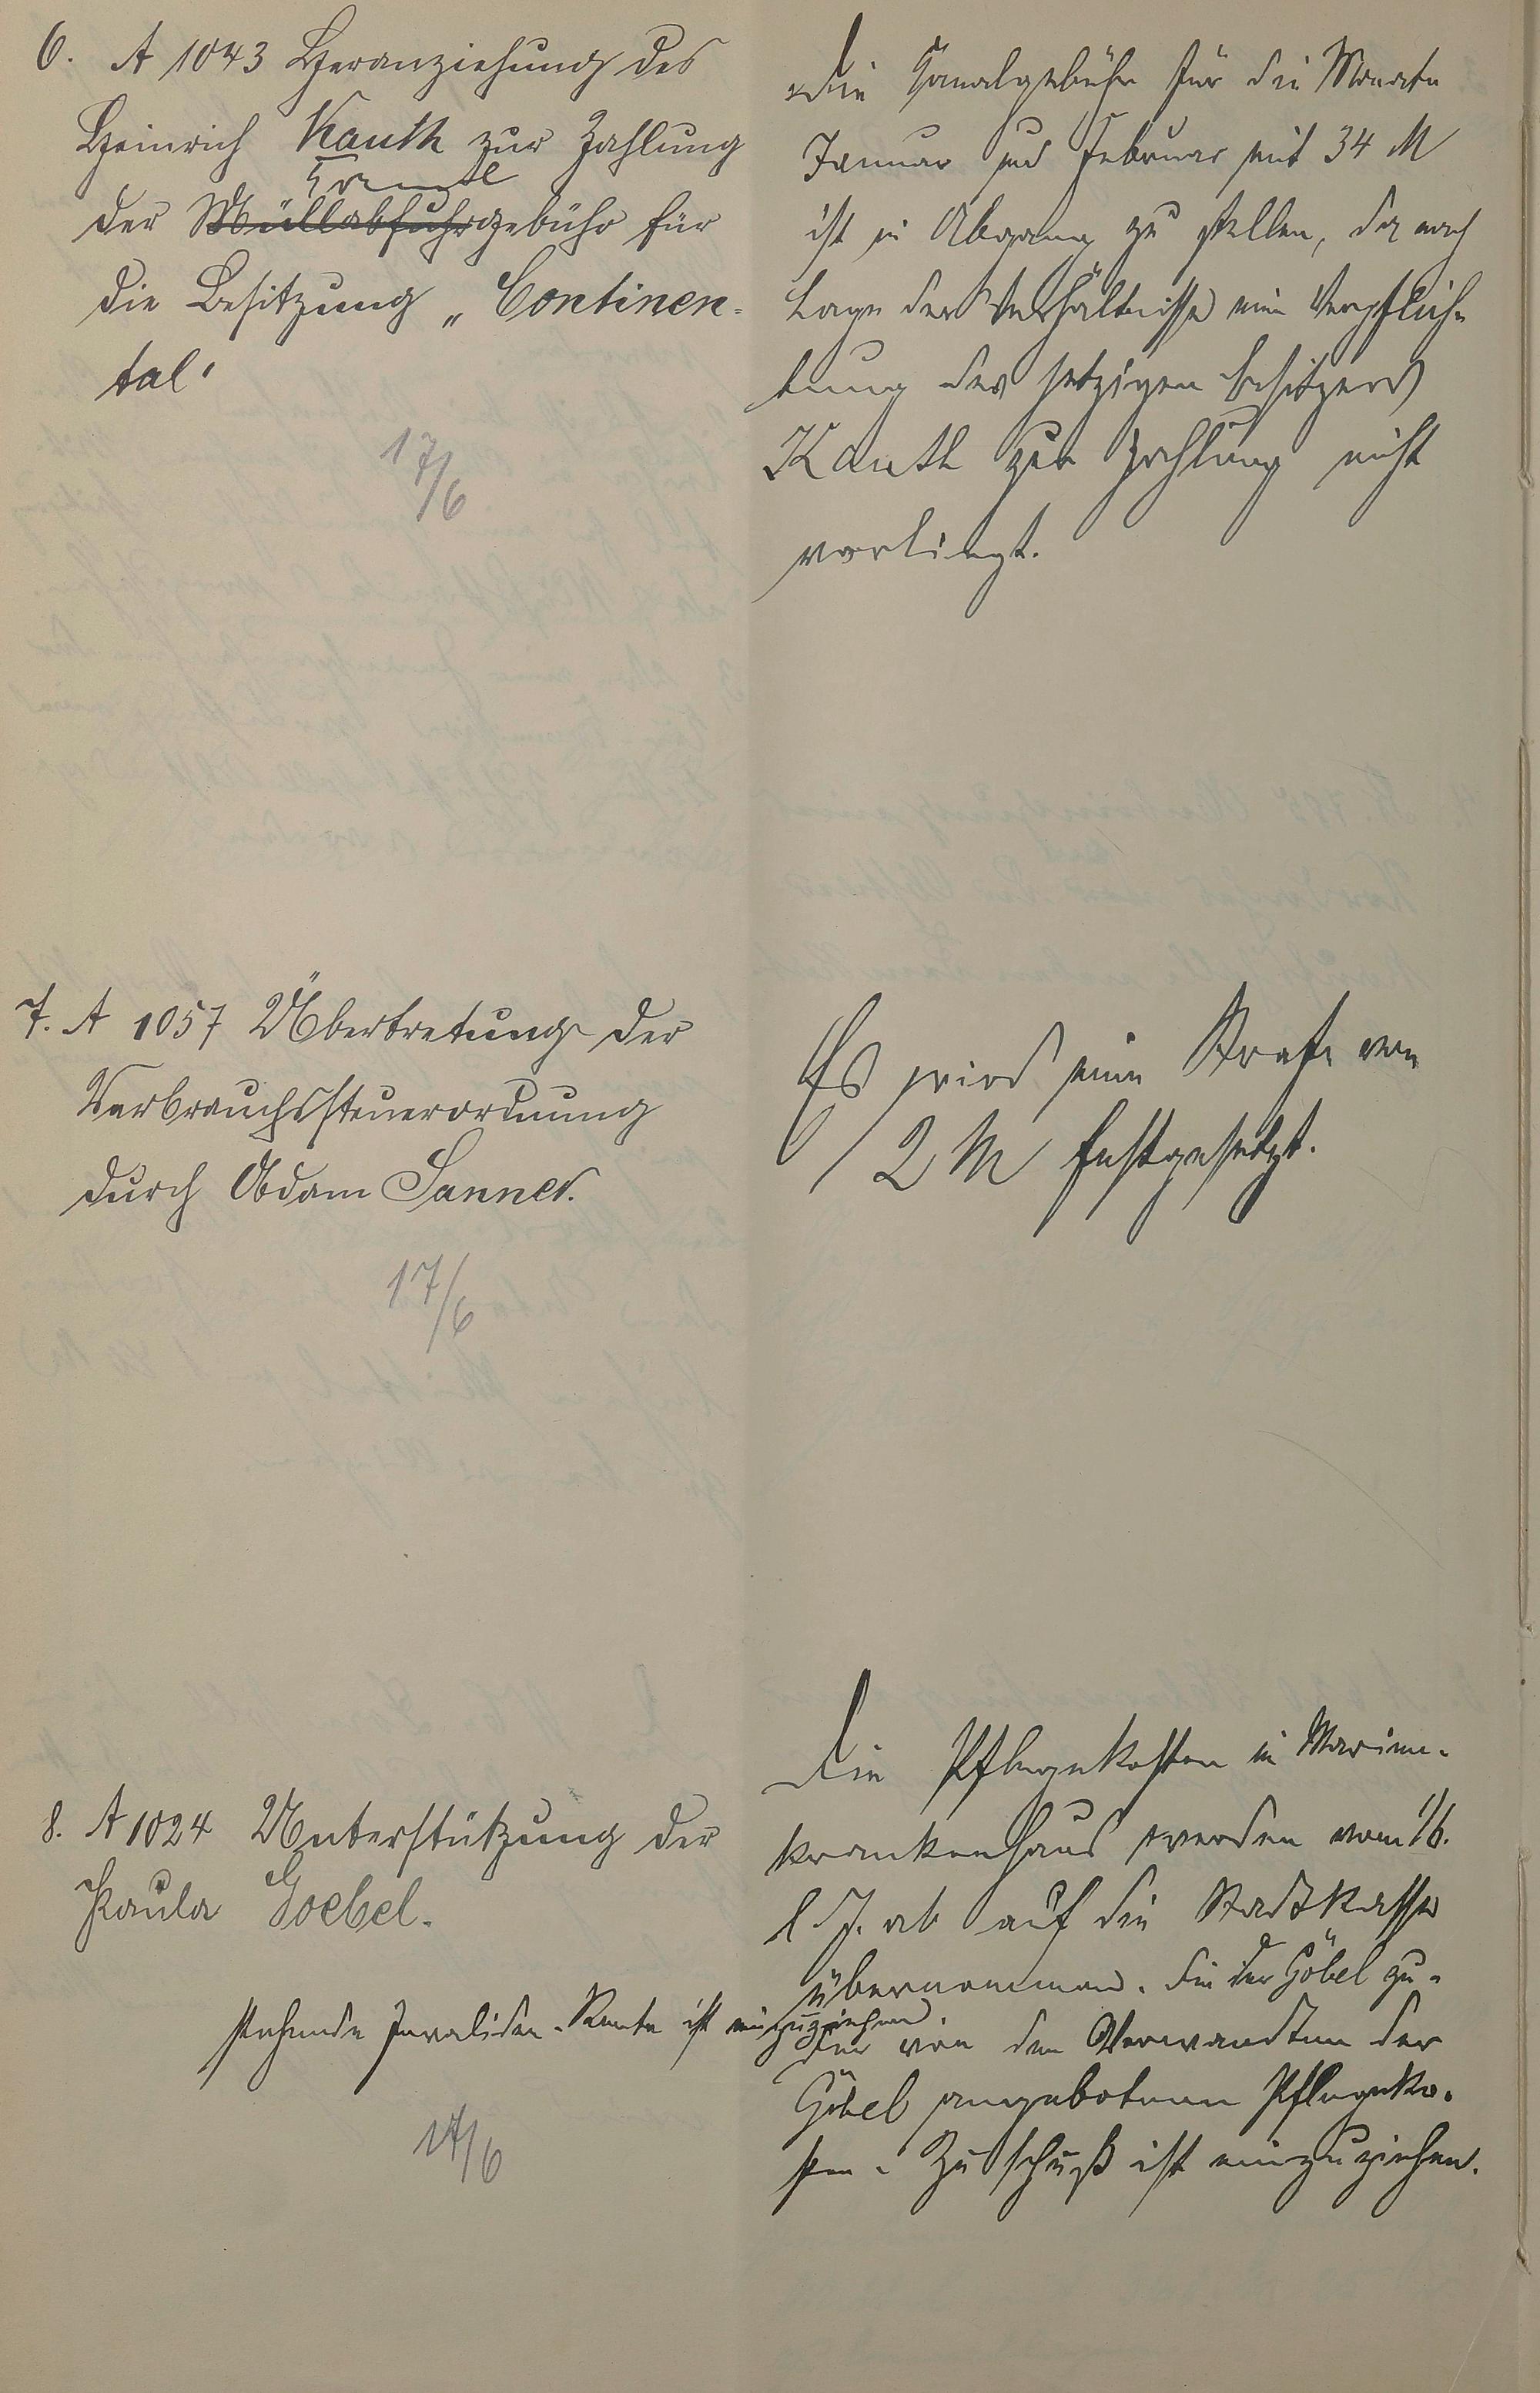 6. A 1043 Heranziehung des
Heinrich Kauth zur Zahlung
Kanal
der Müllabfuhrgebühr für
die Besitzung „Continen-
tal"
17/6
Die Kanalgebühr für die Monate
Januar und Februar mit 34 M
ist in Abgang zu stellen, da nach
Lage der Verhältnisse eine Verpflich-
tung des jetzigen Besitzers
Kauth zur Zahlung nicht
vorliegt.
7. A 1057 Übertretung der
Verbrauchssteuerordnung
durch Adam Sanner.
17/6
Es wird eine Strafe von
2 M festgesetzt.
8. A 1024 Unterstützung der
Paula Goebel.
17/6
Die Pflegekosten im Marien-
krankenhaus werden vom 1/6.
l J. ab auf die Stadtkasse
übernommen. Die der Göbel zu-
stehende Invaliden-Rente ist einzuziehen.
Der von den Verwandten der
Göbel angebotenen Pflegeko-
sten-Zuschuß ist einzuziehen.